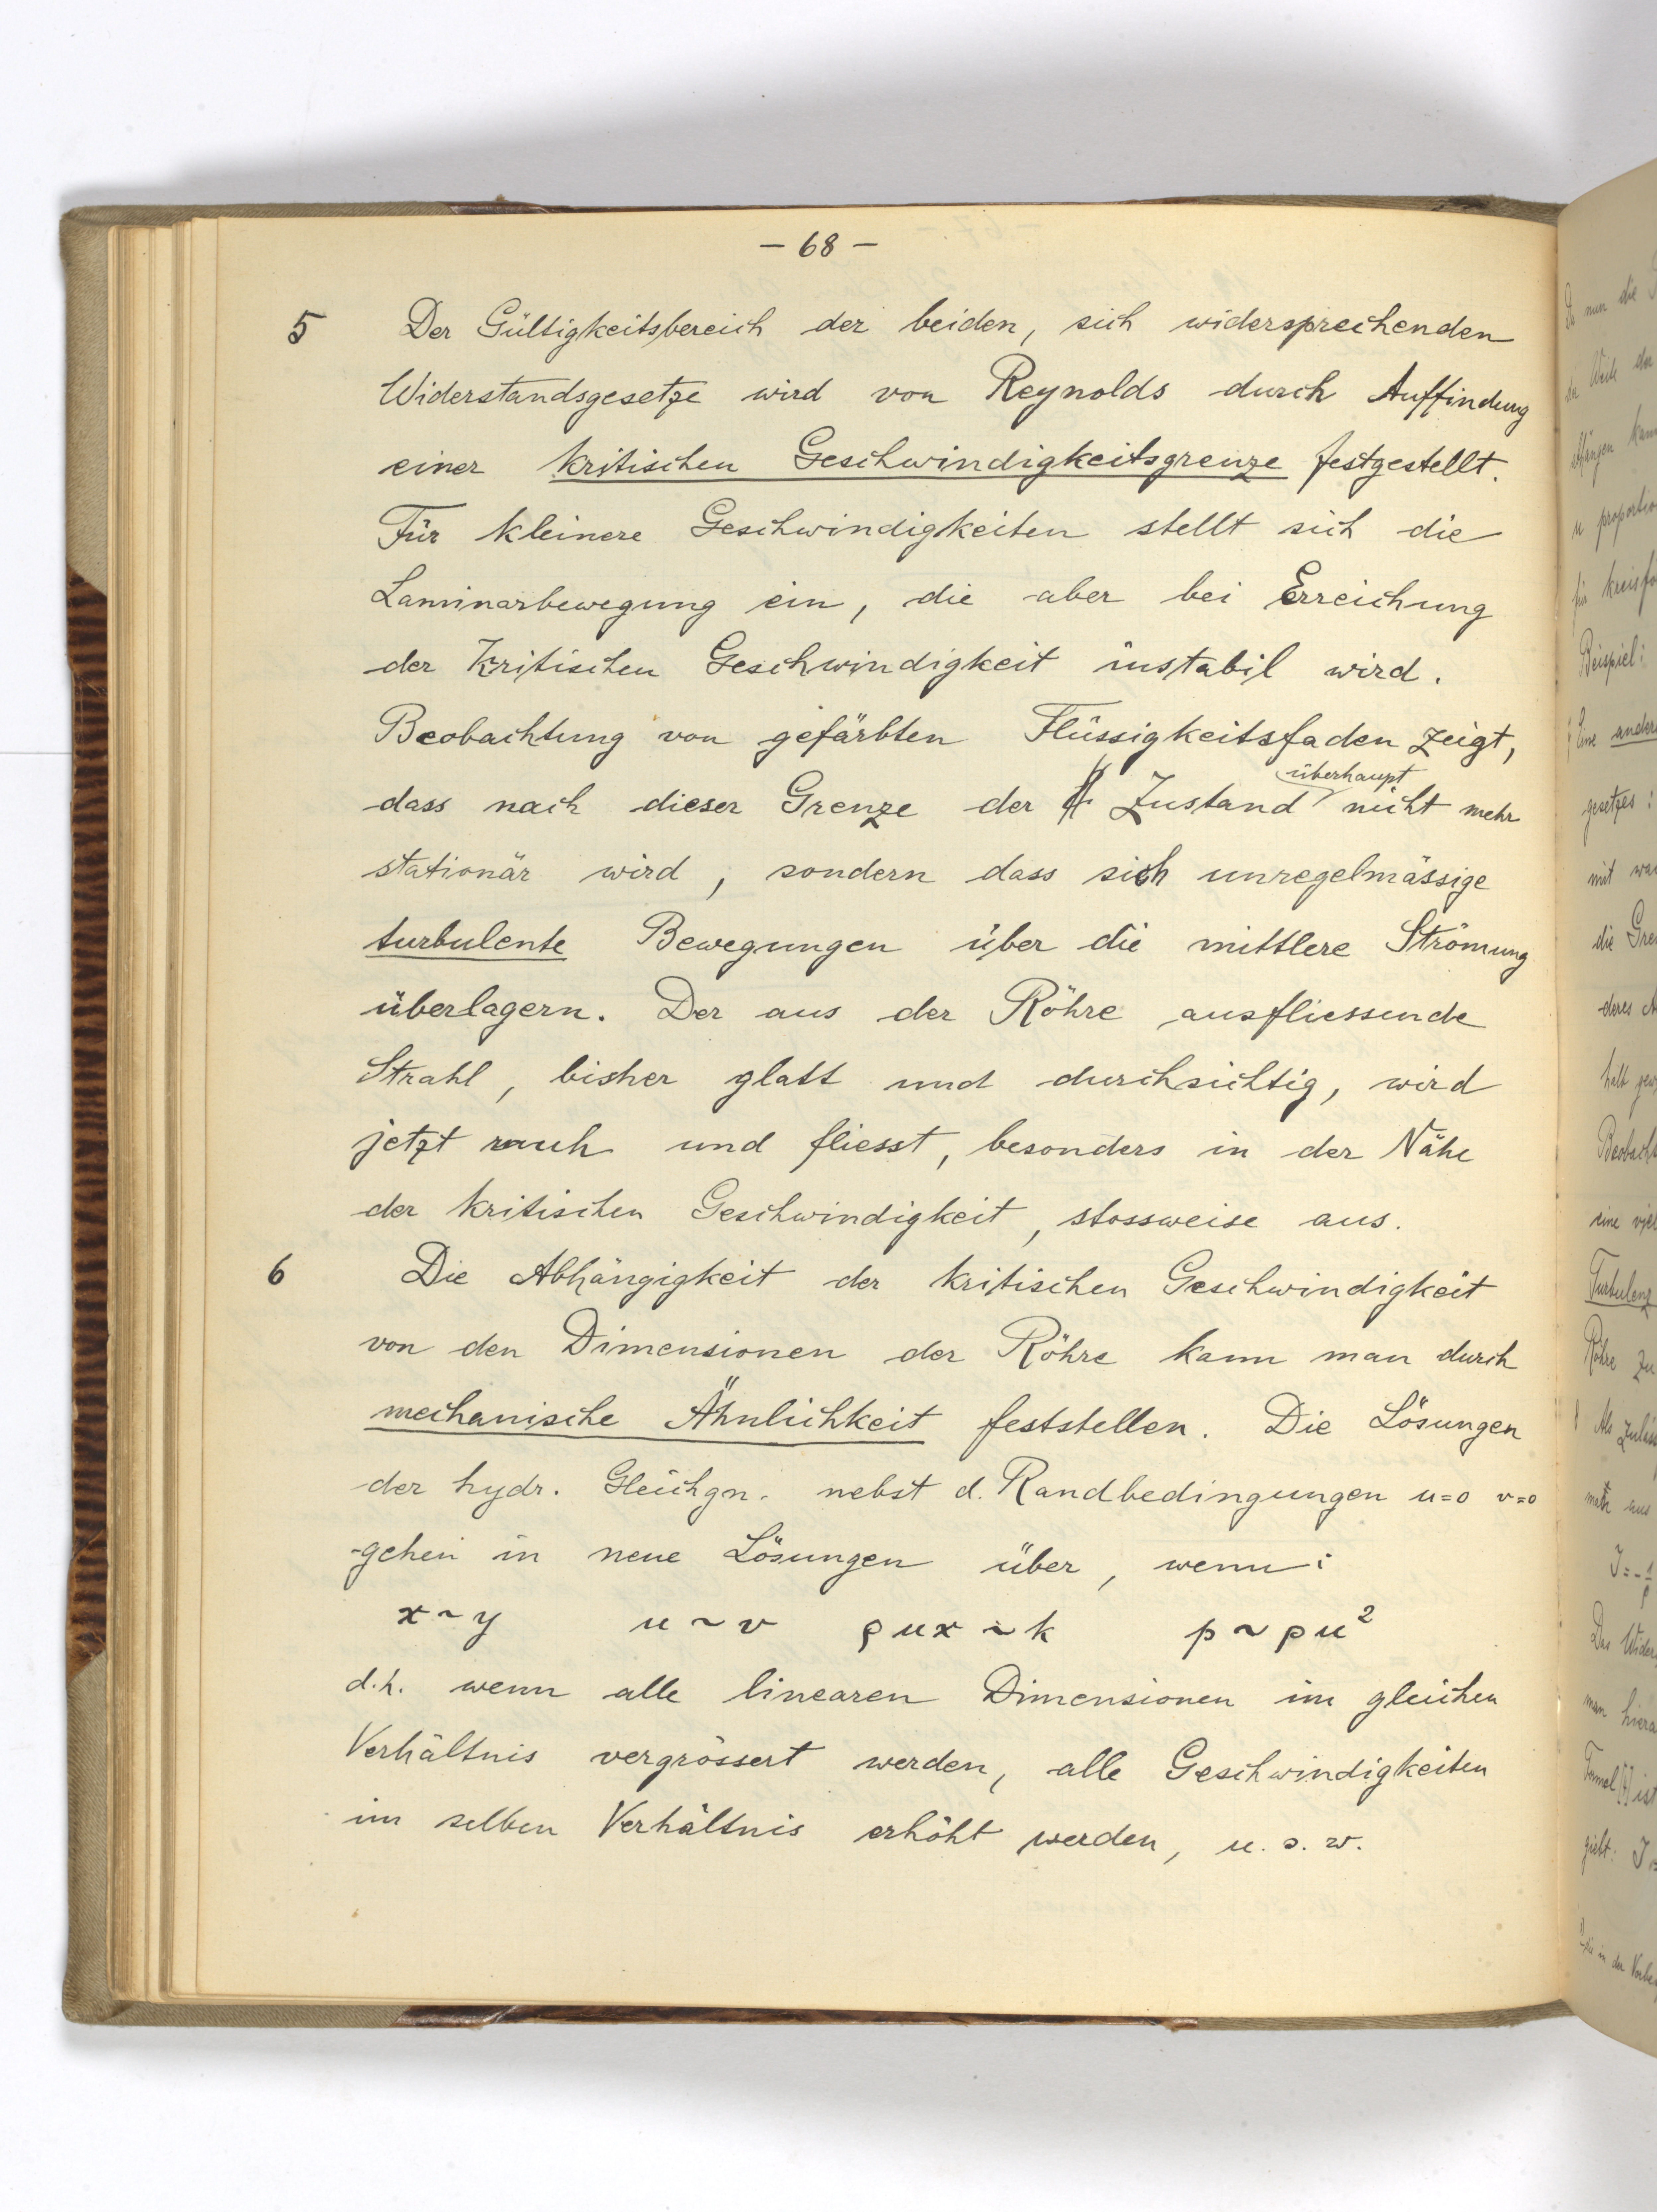 - 68 -
5 Der Gültigkeitsbereich der beiden, sich widersprechenden
Widerstandsgesetze wird von Reynolds durch Auffindung
einer kritischen Geschwindigkeitsgrenze festgestellt.
Für kleinere Geschwindigkeiten stellt sich die
Laminarbewegung ein, die aber bei Erreichung
der kritischen Geschwindigkeit instabil wird.
Beobachtung von gefärbten Flüssigkeitsfaden zeigt,
überhaupt
dass nach dieser Grenze der Zustand nicht mehr
stationär wird, sondern dass sich unregelmässige
turbulente Bewegungen über die mittlere Strömung
überlagern. Der aus der Röhre ausfliessende
Strahl, bisher glatt und durchsichtig, wird
jetzt rauh und fliesst, besonders in der Nähe
der kritischen Geschwindigkeit, stossweise aus.
6 Die Abhängigkeit der kritischen Geschwindigkeit
von den Dimensionen der Röhre kann man durch
mechanische Ähnlichkeit feststellen. Die Lösungen
der hydr. Gleichgn. nebst d. Randbedingungen u=0 v=0
gehen in neue Lösungen über, wenn:
x~y u~v ρux~k p~ρu²
d.h. wenn alle linearen Dimensionen im gleichen
Verhältnis vergrössert werden, alle Geschwindigkeiten
im selben Verhältnis erhöht werden, u.s.w.
nun die
kann
proportio
für kreisfo
Beispiel:
Eine andere
gesetzes:
mit
die Gre
deres
halt
Beobach
eine viel
Turbulenz
Röhre zu
Als zuläss
aus
Das Wider
man hiera
Formel ist
giebt: J
in der Vorbe